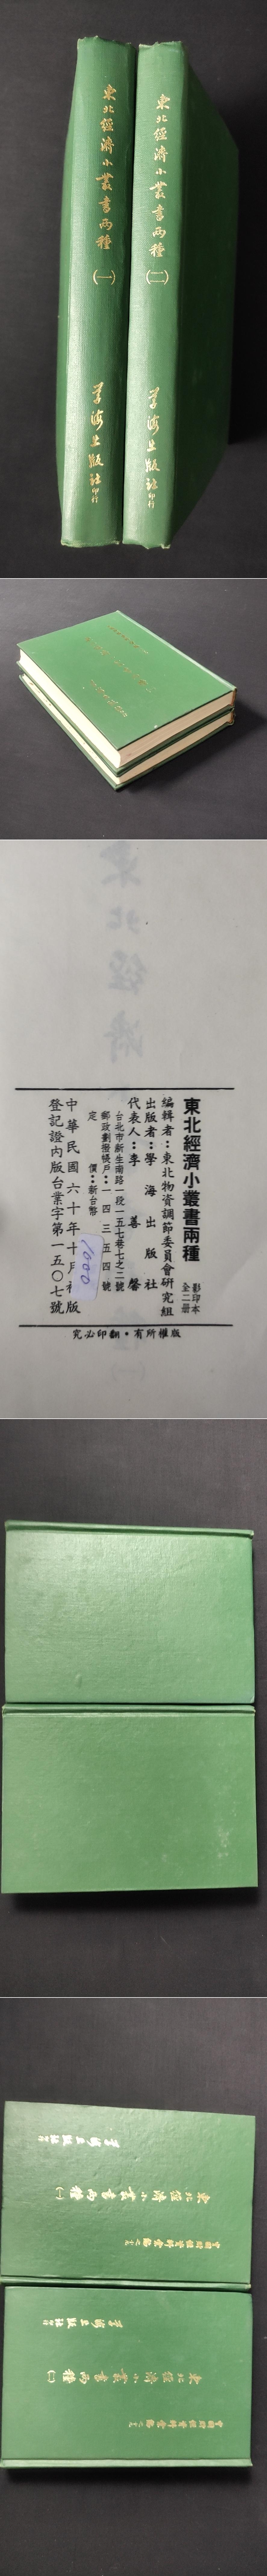 東北經濟小叢書兩種(一)
學海出版社印行
東北經濟小叢書兩種(二)
學海出版社印行
東北經濟
東北經濟小叢書兩種
影印本
全二册
編輯者：東北物資調節委員會研究組
出版者：學海出版社
代表人：李善馨
台北市新生南路一段一五七巷七之二號
郵政劃撥帳戶：一四三五四號
定價：新台幣
1000
中華民國六十年十月 版
登記證內版台業字第一五〇七號
版權所有・翻印必究
東北經濟小叢書兩種(一)
學海出版社印行
東北經濟小叢書兩種(二)
學海出版社印行